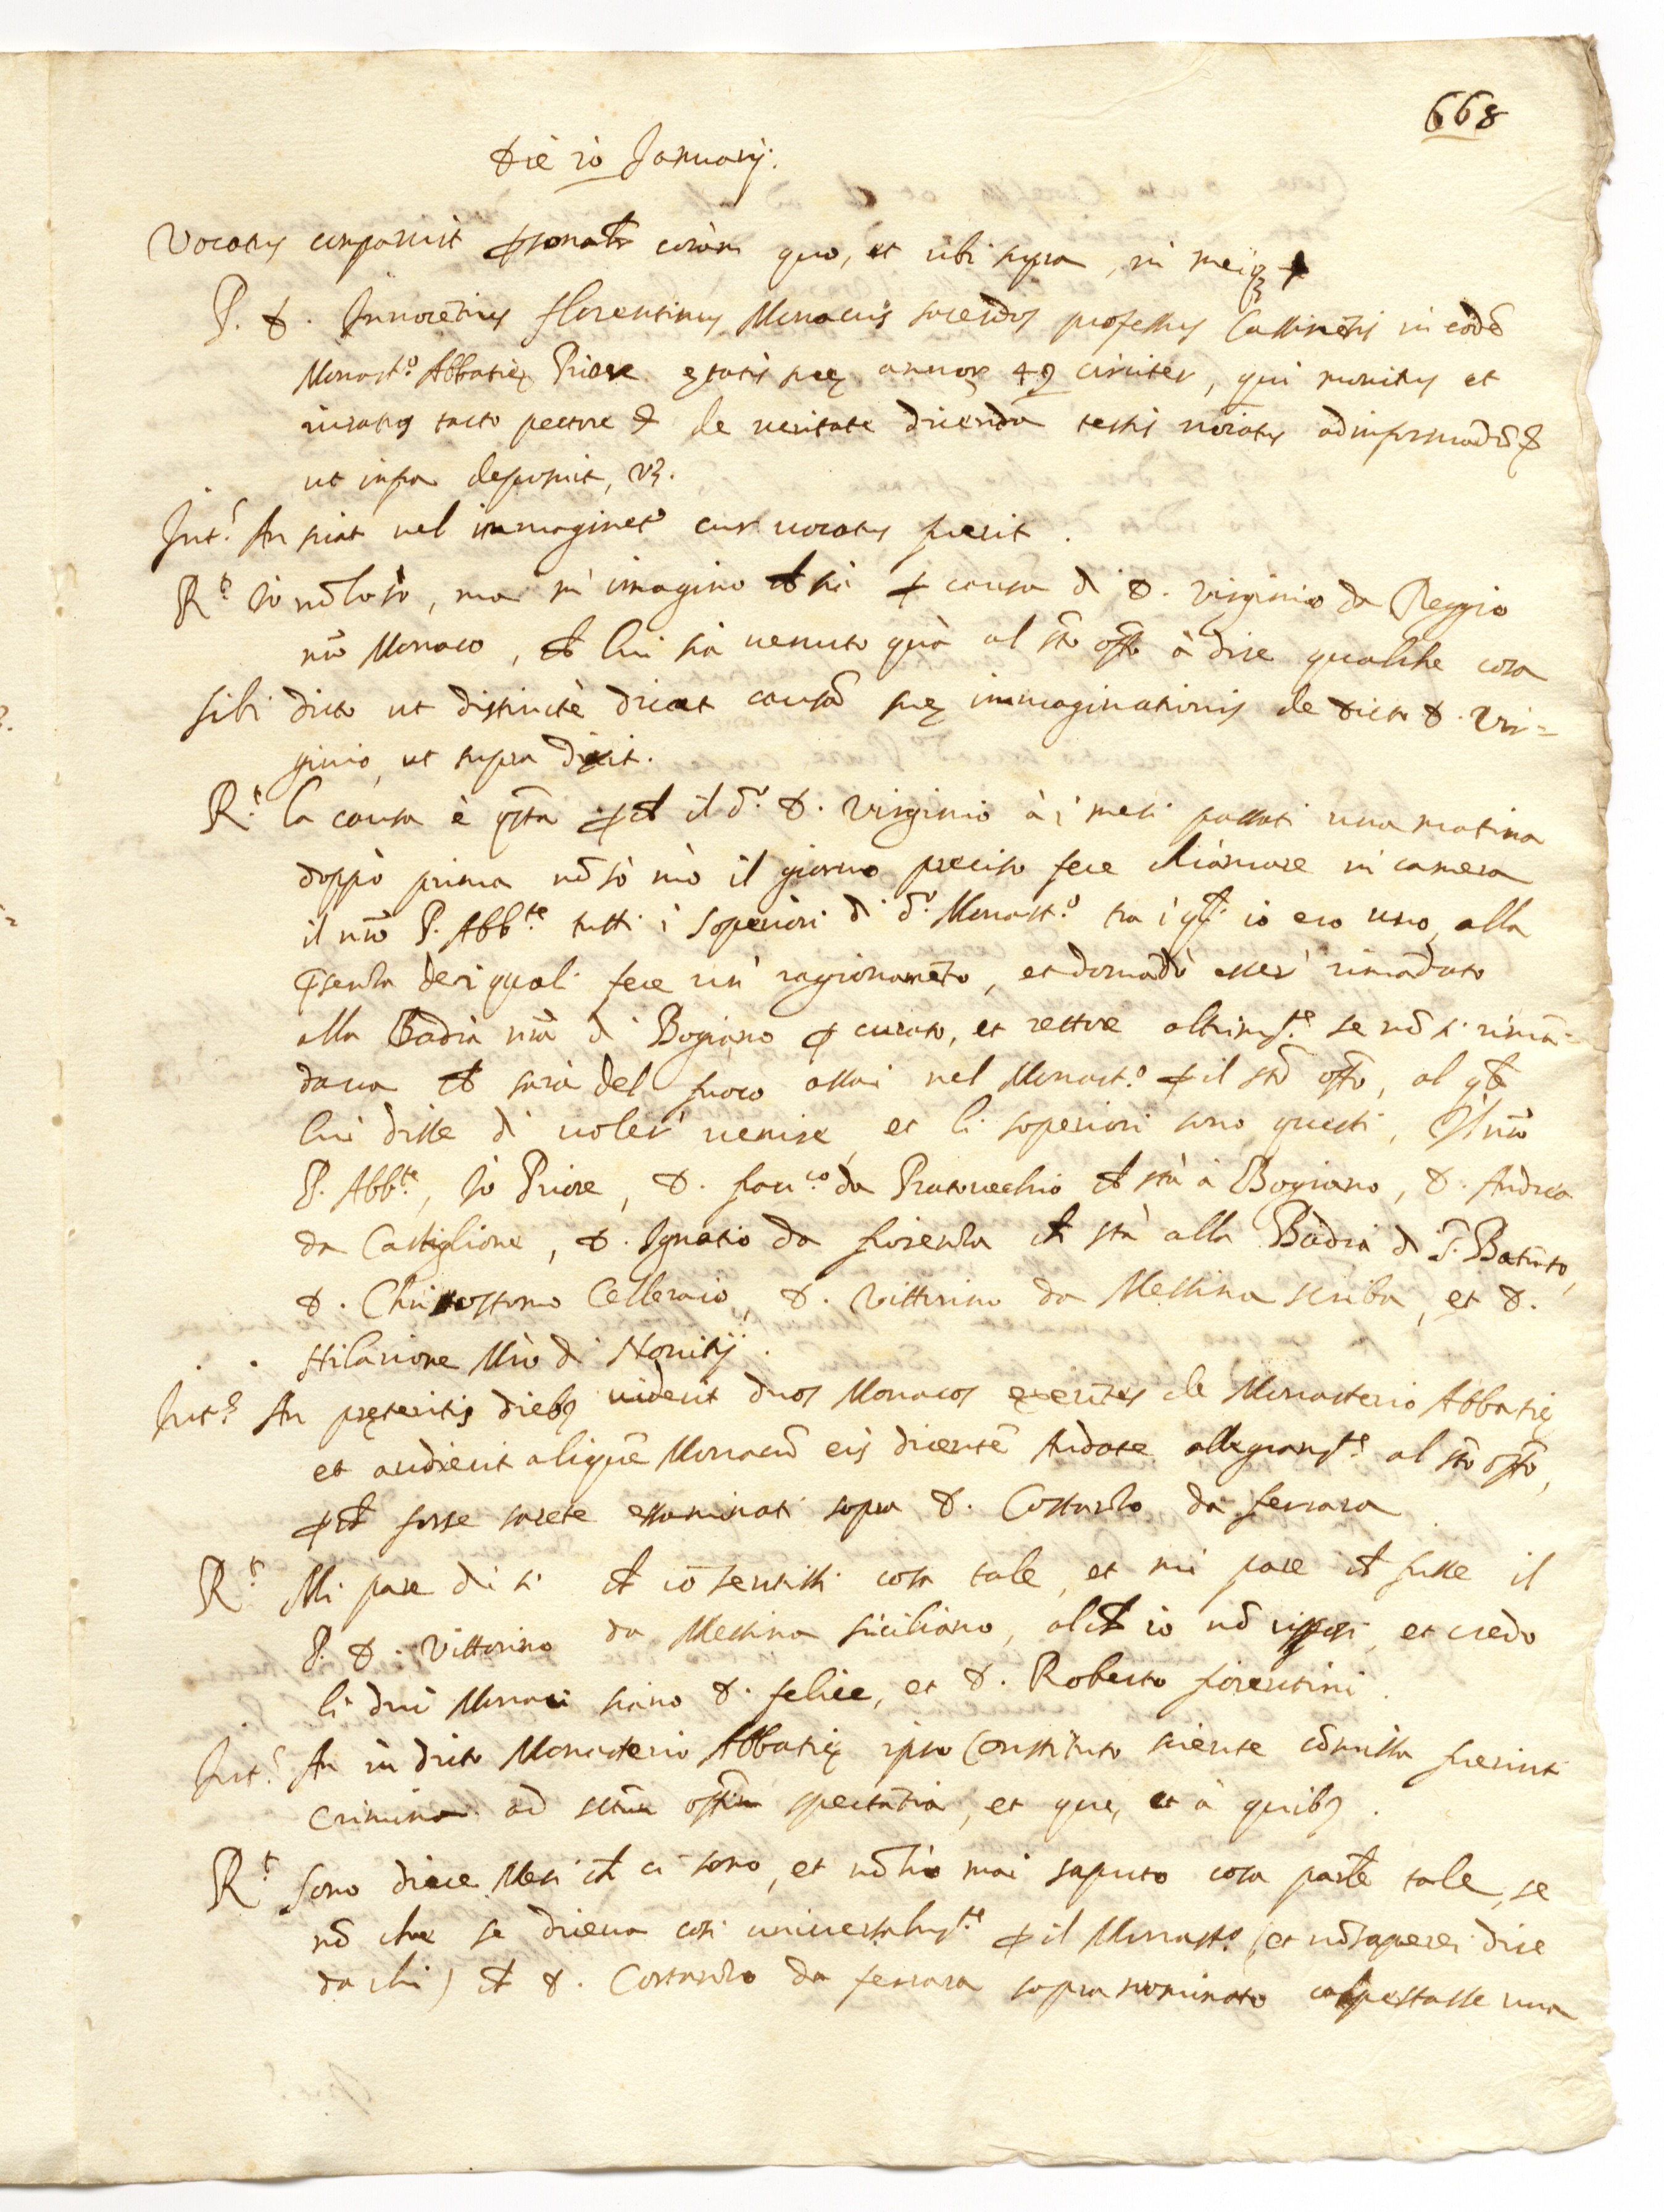 668
Die 10 Januarij.
Vocatus comparuit personalr coràm quo, et ubi supra, in meiq3
P. D. Innocētius florentinus Monacus sacerdos professus Cassinēsis in eodē
Monastº Abbatię Prior ętatis suę annor 49 circiter, qui monitus et
iuratus tacto pectore de veritate dicenda testis noīatus ad informādū
ut infra deposuit, vz.
Intˢ An sciat vel immaginetʳ cur vocatus fuerit.
Rᵗ Io nō lo sò, ma m'imagino ch sia p causa di D. Virginio da Reggio
nrō Monaco, ch lui sia venuto quà al stō offº à dire qualche cosa
sibi dicto ut distinctè dicat causā suę immaginationis de dicto D. Vir=
ginio, ut supra dixit.
Rᵗ La causa è qsta pch il dº D. Virginio à i mesi passati una matina
doppò prima nō sò mò il giorno preciso fece chiamare in camera
il nrō P. Abbᵗᵉ tutti i soperiori di dº Monastº tra i qli io ero uno, alla
psenza dei quali fece un' ragionamēto, et domādò esser' rimādato
alla Badia nrā di Bogiano p curato, et rettore altrimᵗᵉ se nō si rimā=
dava ch saria del fuoco assai nel Monastº p il stō offº, al qle
lui disse di voler' venire, et li soperiori sono questi, Il nrō
P. Abbᵗᵉ, Io Priore, D. Francº da Pratovechio ch stà à Bogiano, D. Andrea
da Castiglione, D. Ignatio da fiorenza ch stà alla Badia di S. Batinto,
D. Chrisostomo Celleraio, D. Vittorino da Messina scriba, et D.
Hilarione Mrō di Novitij.
Intˢ An pręteritis diebq viderit duos Monacos exeūtes de Monasterio Abbatię
et audierit aliquē Monacū eis dicentē Andate allegramᵗᵉ al stō offº,
pch forse sarete essaminati sopra D. Costanzo da ferrara
Rᵗ Mi pare di si ch io sentissi cosa tale, et mi pare ch fusse il
P. D. Vittorino da Messina siciliano, al ch io nō risposi, et credo
li dui Monaci siano D. felice, et D. Roberto fiorentini.
Intˢ An in dicto Monasterio Abbatię ipso Constituto sciente cōmissa fuerint
crimina ad sctum offm spectātia, et que, et à quibq.
Rᵗ Sono diece Mesi ch ci sono, et nō hò mai saputo cosa parle tale, se
nō che se diceva cosi universalmᵗᵉ p il Monastº (et nō saperei dire
da chi) ch D. Costanzo da ferrara sopra nominato calpestasse una